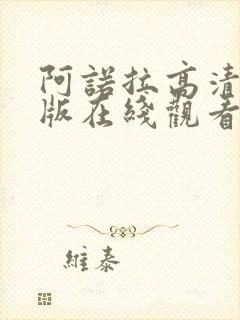 阿諾拉高清
版在綫觀看
維泰